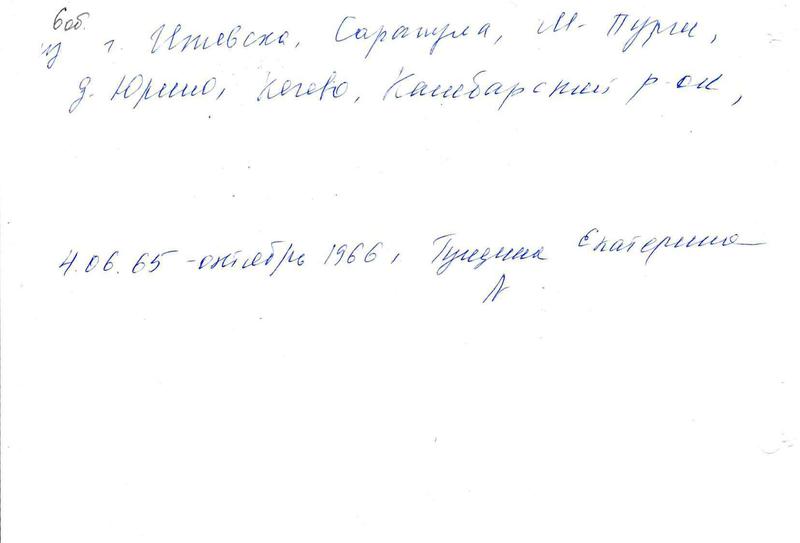 6об.
из г. Ижевска, Сарапула, М-Пурги,
д. Юрино, Камбарский р-он,
4.06.65 - октябрь 1966, Екатерина
N